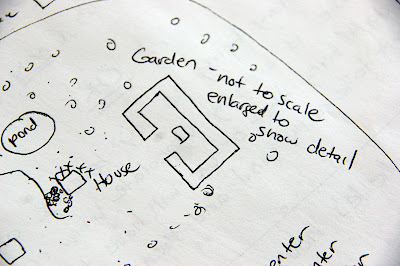 Garden - not to scale
enlarged to
show detail
pond
House
enter